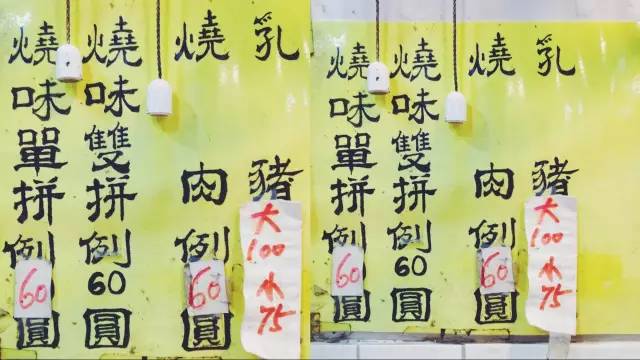 乳豬
大100
小75
燒肉例60圓
燒味雙拼例60圓
燒味單拼例60圓
乳豬
大100
小75
燒肉例60圓
燒味雙拼例60圓
燒味單拼例60圓